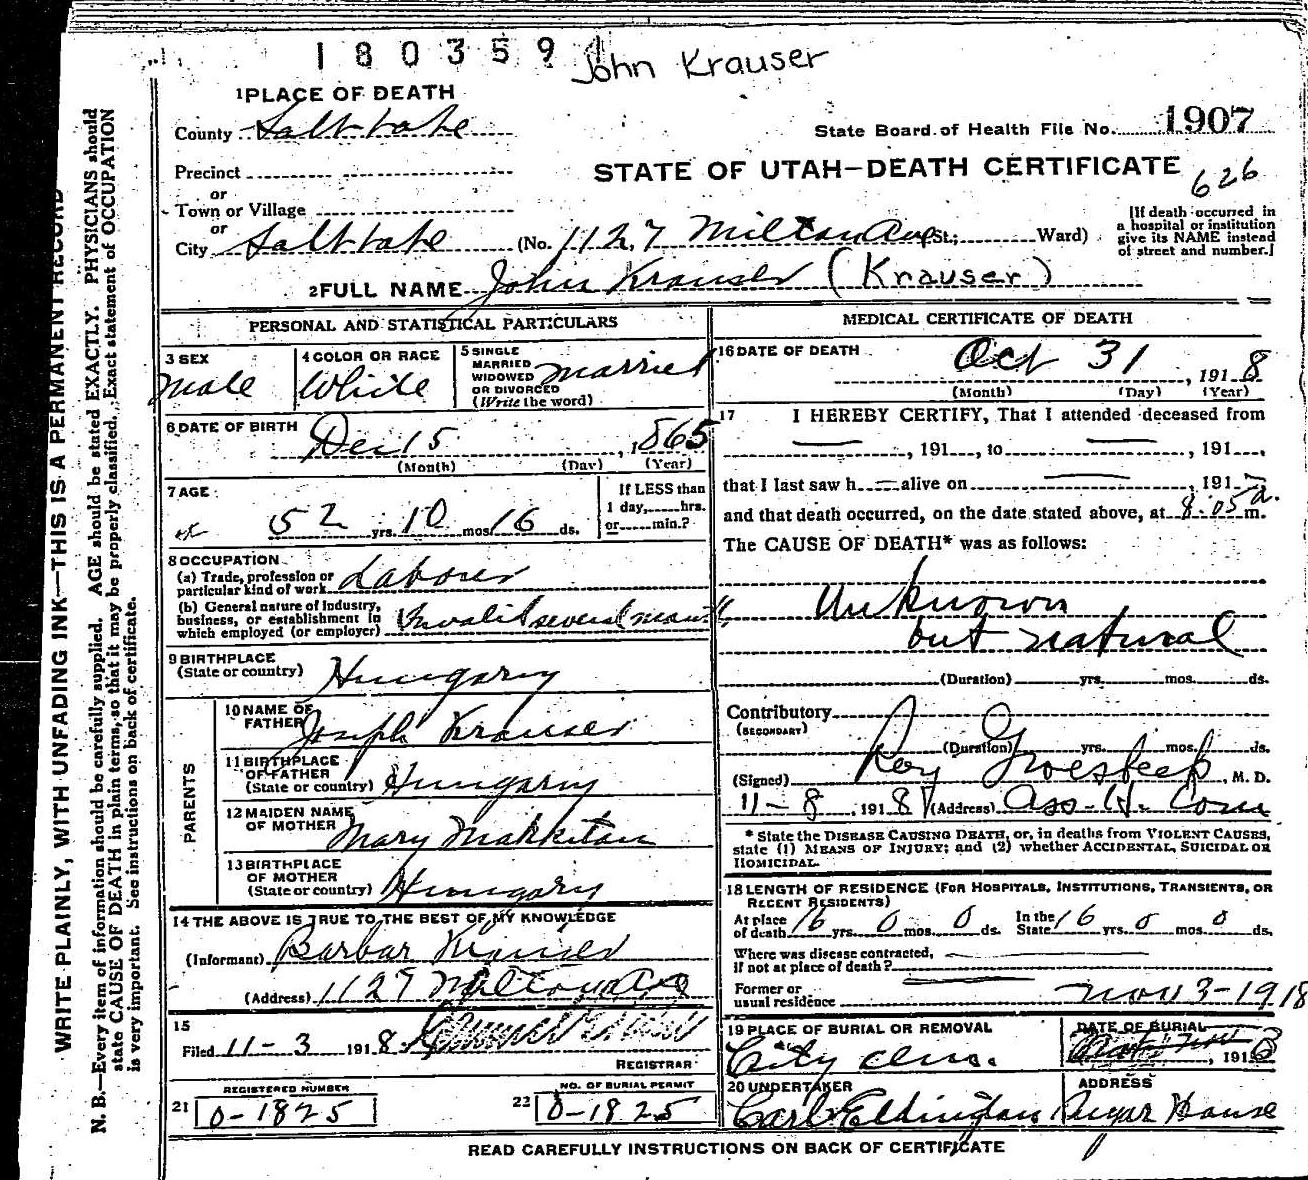 180359 John Krauser
1 PLACE OF DEATH
County Salt Lake
State Board of Health File No. 1907
Precinct
STATE OF UTAH—DEATH CERTIFICATE
626
or
Town or Village
or
City Salt Lake (No. 1127 Milton Ave St.; Ward)
[If death occurred in
a hospital or institution
give its NAME instead
of street and number.]
2 FULL NAME John Krauser (Krauser)
PERSONAL AND STATISTICAL PARTICULARS
3 SEX
Male
4 COLOR OR RACE
White
5 SINGLE
MARRIED
WIDOWED
OR DIVORCED
(Write the word)
Married
6 DATE OF BIRTH
Dec 15, 1865
(Month) (Day) (Year)
7 AGE
52 yrs. 10 mos. 16 ds.
If LESS than
1 day, hrs.
or min.?
8 OCCUPATION
(a) Trade, profession or
particular kind of work Laborer
(b) General nature of Industry,
business, or establishment in
which employed (or employer) Invalid several months
9 BIRTHPLACE
(State or country) Hungary
PARENTS
10 NAME OF
FATHER Joseph Krauser
11 BIRTHPLACE
OF FATHER
(State or country) Hungary
12 MAIDEN NAME
OF MOTHER Mary
13 BIRTHPLACE
OF MOTHER
(State or country) Hungary
14 THE ABOVE IS TRUE TO THE BEST OF MY KNOWLEDGE
(Informant) Barbar Krauser
(Address) 1127 Milton Ave
15
Filed 11-3 1918
REGISTRAR
REGISTERED NUMBER
21 0-1825
NO. OF BURIAL PERMIT
22 0-1825
MEDICAL CERTIFICATE OF DEATH
16 DATE OF DEATH
Oct 31, 1918
(Month) (Day) (Year)
17 I HEREBY CERTIFY, That I attended deceased from
— , 191 , to — , 191 ,
that I last saw h — alive on — , 191
and that death occurred, on the date stated above, at 8:05 a. m.
The CAUSE OF DEATH* was as follows:
Unknown
but natural
(Duration) yrs. mos. ds.
Contributory
(SECONDARY)
(Duration) yrs. mos. ds.
(Signed) Roy Groesbeck, M. D.
11-8, 1918 (Address) Ass. H. Com
* State the DISEASE CAUSING DEATH, or, in deaths from VIOLENT CAUSES,
state (1) MEANS OF INJURY; and (2) whether ACCIDENTAL, SUICIDAL OR
HOMICIDAL.
18 LENGTH OF RESIDENCE (FOR HOSPITALS, INSTITUTIONS, TRANSIENTS, OR
RECENT RESIDENTS)
At place
of death 16 yrs. 0 mos. 0 ds.
In the
State 16 yrs. 0 mos. 0 ds.
Where was disease contracted,
if not at place of death?
Former or
usual residence
Nov 3-1918
19 PLACE OF BURIAL OR REMOVAL
City Cem.
DATE OF BURIAL
, 1918
20 UNDERTAKER
Carl Eddington
ADDRESS
Sugar House
READ CAREFULLY INSTRUCTIONS ON BACK OF CERTIFICATE
WRITE PLAINLY, WITH UNFADING INK—THIS IS A PERMANENT RECORD
N. B.—Every item of information should be carefully supplied. AGE should be stated EXACTLY. PHYSICIANS should
state CAUSE OF DEATH in plain terms, so that it may be properly classified. Exact statement of OCCUPATION
is very important. See instructions on back of certificate.